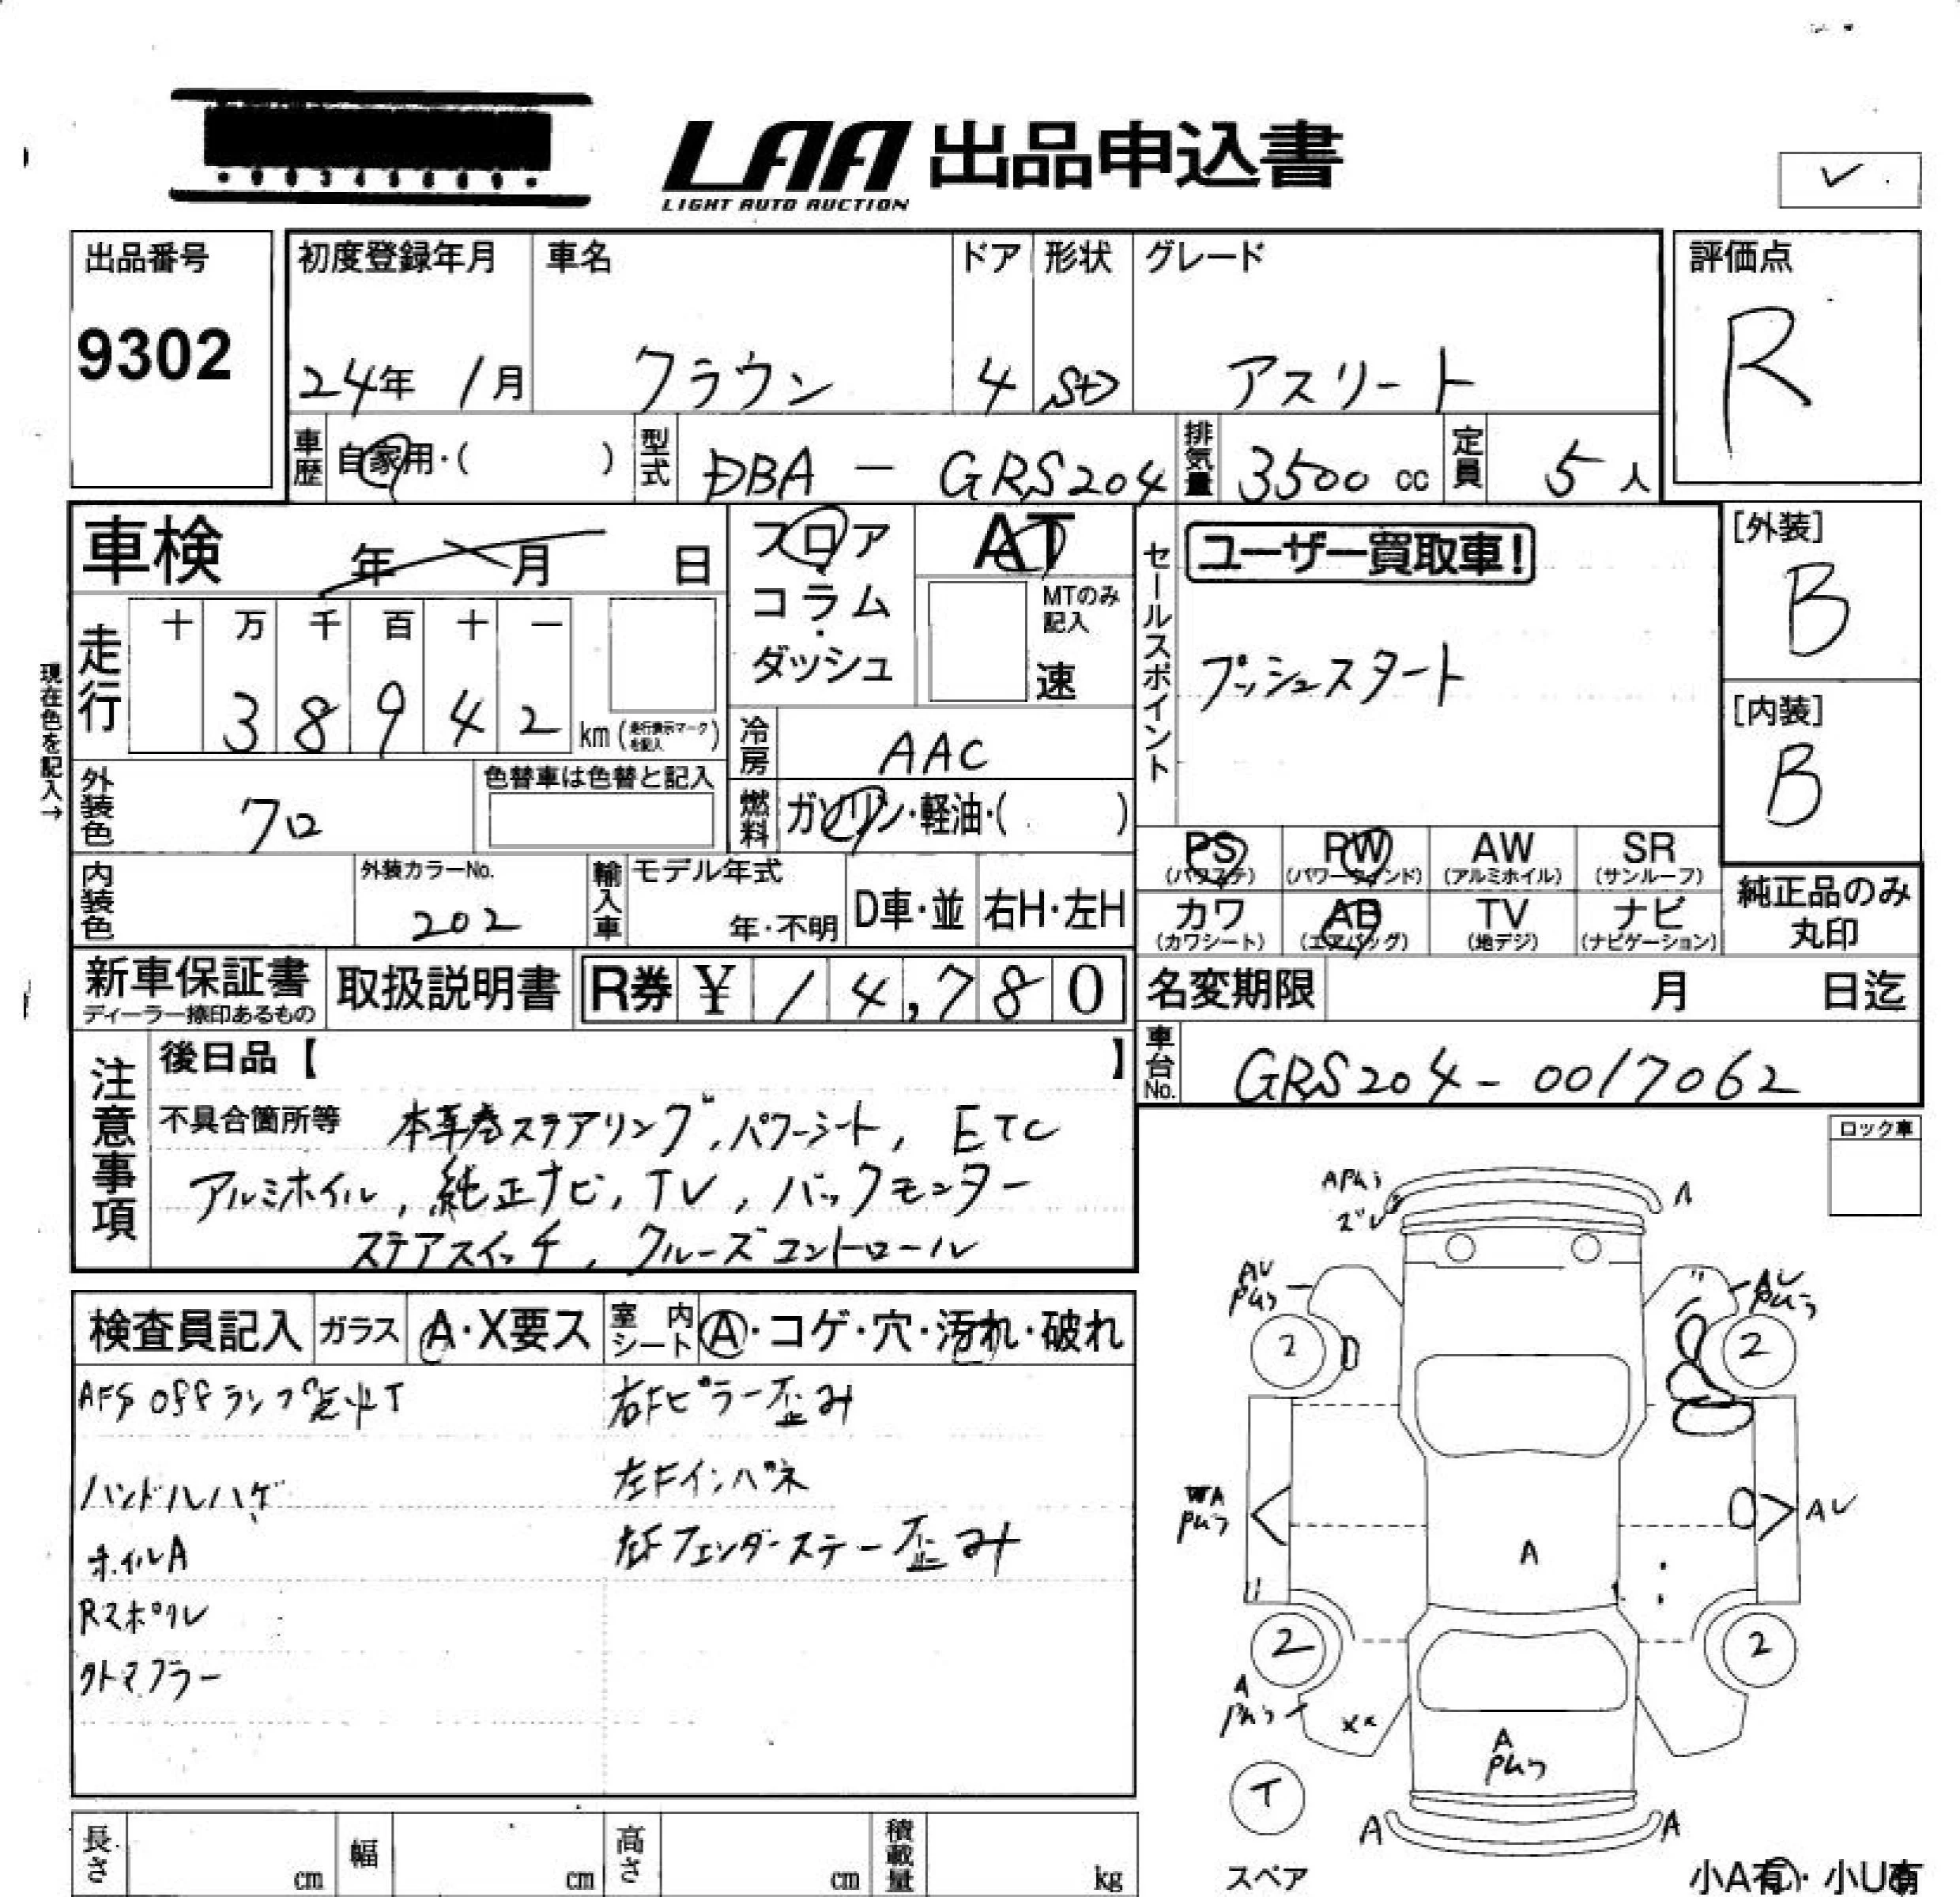 LAA 出品申込書
LIGHT AUTO AUCTION
出品番号
9302
初度登録年月
24年 1月
車名
クラウン
ドア
4
形状
SD
グレード
アスリート
評価点
R
車歴
自家用・( )
型式
DBA - GRS204
排気量
3500 cc
定員
5 人
車検 年 月 日
フロア
コラム
・
ダッシュ
AT
MTのみ
記入
速
セールスポイント
ユーザー買取車!
プッシュスタート
[外装]
B
[内装]
B
現在色を記入→
走行
十 万 千 百 十 一
3 8 9 4 2 km (走行表示マークを記入)
冷房
AAC
外装色
クロ
色替車は色替と記入
燃料
ガソリン・軽油・( )
PS (パワステ)
PW (パワーウィンド)
AW (アルミホイル)
SR (サンルーフ)
カワ (カワシート)
AB (エアバッグ)
TV (地デジ)
ナビ (ナビゲーション)
純正品のみ
丸印
内装色
外装カラーNo.
202
輸入車
モデル年式
年・不明
D車・並
右H・左H
新車保証書
ディーラー捺印あるもの
取扱説明書
R券 ¥ 14,780
名変期限 月 日迄
車台No.
GRS204-0017062
注意事項
後日品【 】
不具合箇所等 本革巻ステアリング, パワーシート, ETC
アルミホイル, 純正ナビ, TV, バックモニター
ステアスイッチ, クルーズコントロール
ロック車
検査員記入
ガラス
A・X要ス
室内
シート
A・コゲ・穴・汚れ・破れ
AFS OFFランプ
ハンドルハゲ
ホイルA
Rスポイル
クトマフラー
右Fピラー歪み
左Fインパネ
左Fフェンダーステー歪み
ズレ
A
2
2
AV
A
2
2
A
A
T
A
A
スペア
小A有・小U有
長さ cm
幅 cm
高さ cm
積載量 kg